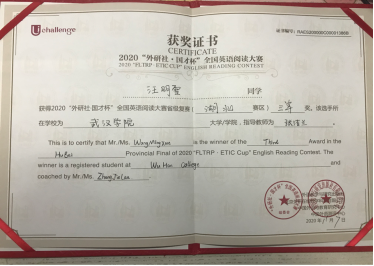 Uchallenge
获奖证书
CERTIFICATE
2020 “外研社·国才杯” 全国英语阅读大赛
2020 “FLTRP · ETIC CUP” ENGLISH READING CONTEST
汪明 同学
获得2020 “外研社·国才杯” 全国英语阅读大赛省级复赛( 湖北 赛区) 三等 奖, 该选手所
在学校为 武汉学院 大学/学院, 指导教师为
This is to certify that Mr./Ms. is the winner of the Third Award in the
HuBei Provincial Final of 2020 “FLTRP · ETIC Cup” English Reading Contest. The
winner is a registered student at Wu Han College and
coached by Mr./Ms.